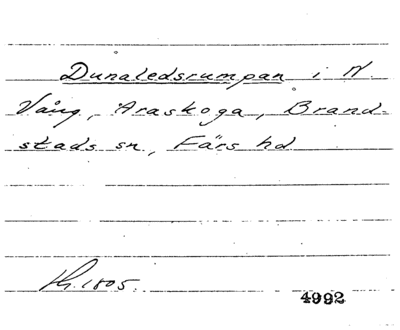 Dunaledsrumpan i N.
Vång, Araskoga, Brand-
stads sn, Färs hd
1805.
4992